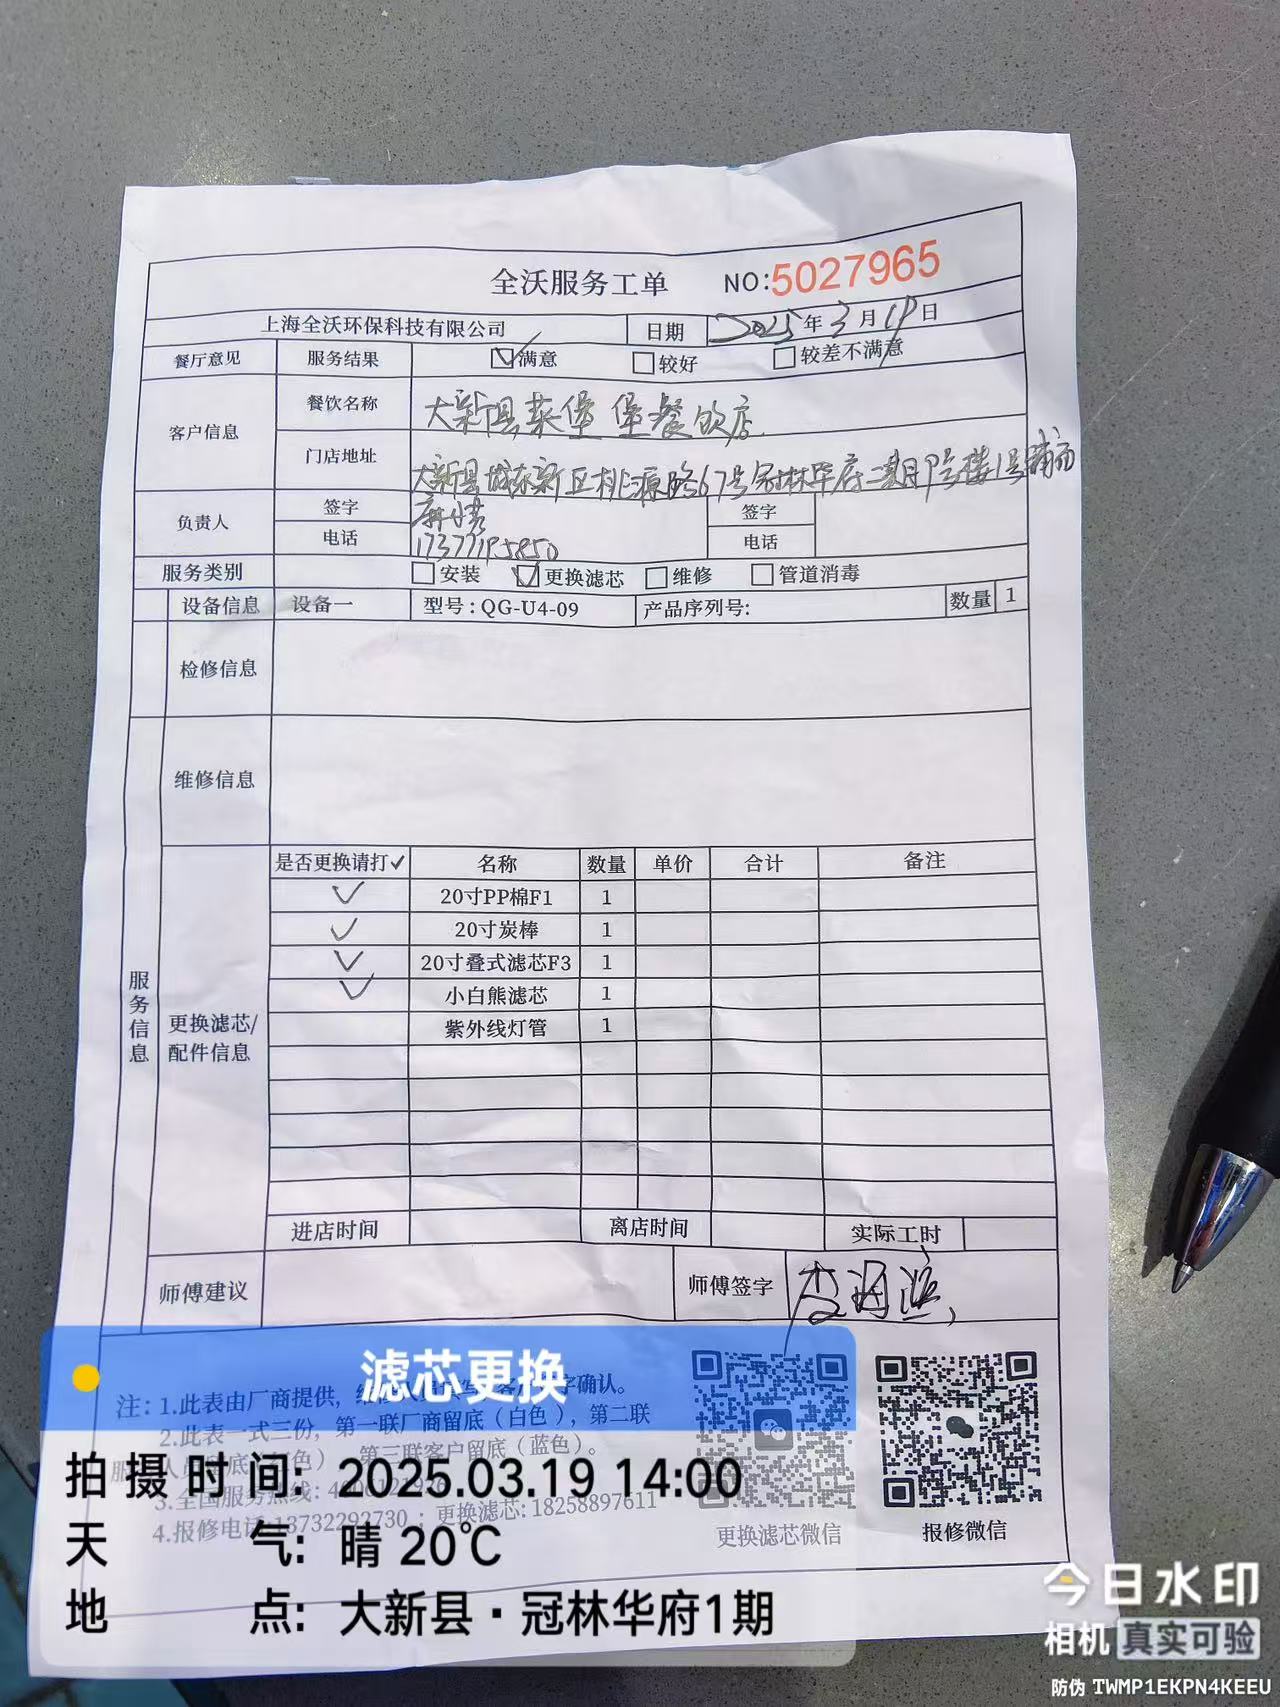 全沃服务工单 NO:5027965
上海全沃环保科技有限公司 日期 2025年3月19日
餐厅意见 服务结果 满意 较好 较差不满意
客户信息 餐饮名称 大新县莱堡堡餐饮店
门店地址 大新县城东新区桃源路67号冠林华府二期9号楼1号铺面
负责人 签字 签字
电话 电话
服务类别 安装 更换滤芯 维修 管道消毒
设备信息 设备一 型号:QG-U4-09 产品序列号: 数量 1
检修信息
维修信息
服务信息
更换滤芯/配件信息
是否更换请打✓ 名称 数量 单价 合计 备注
✓ 20寸PP棉F1 1
✓ 20寸炭棒 1
✓ 20寸叠式滤芯F3 1
✓ 小白熊滤芯 1
紫外线灯管 1
进店时间 离店时间 实际工时
师傅建议 师傅签字
滤芯更换
注: 1.此表由厂商提供,
2.此表一式三份,第一联厂商留底(白色),第二联
第三联客户留底(蓝色)。
3.全国服务热线:
4.报修电话:13732292730 ; 更换滤芯:18258897611
更换滤芯微信 报修微信
拍摄时间: 2025.03.19 14:00
天气: 晴 20℃
地点: 大新县·冠林华府1期
今日水印
相机 真实可验
防伪 TWMP1EKPN4KEEU